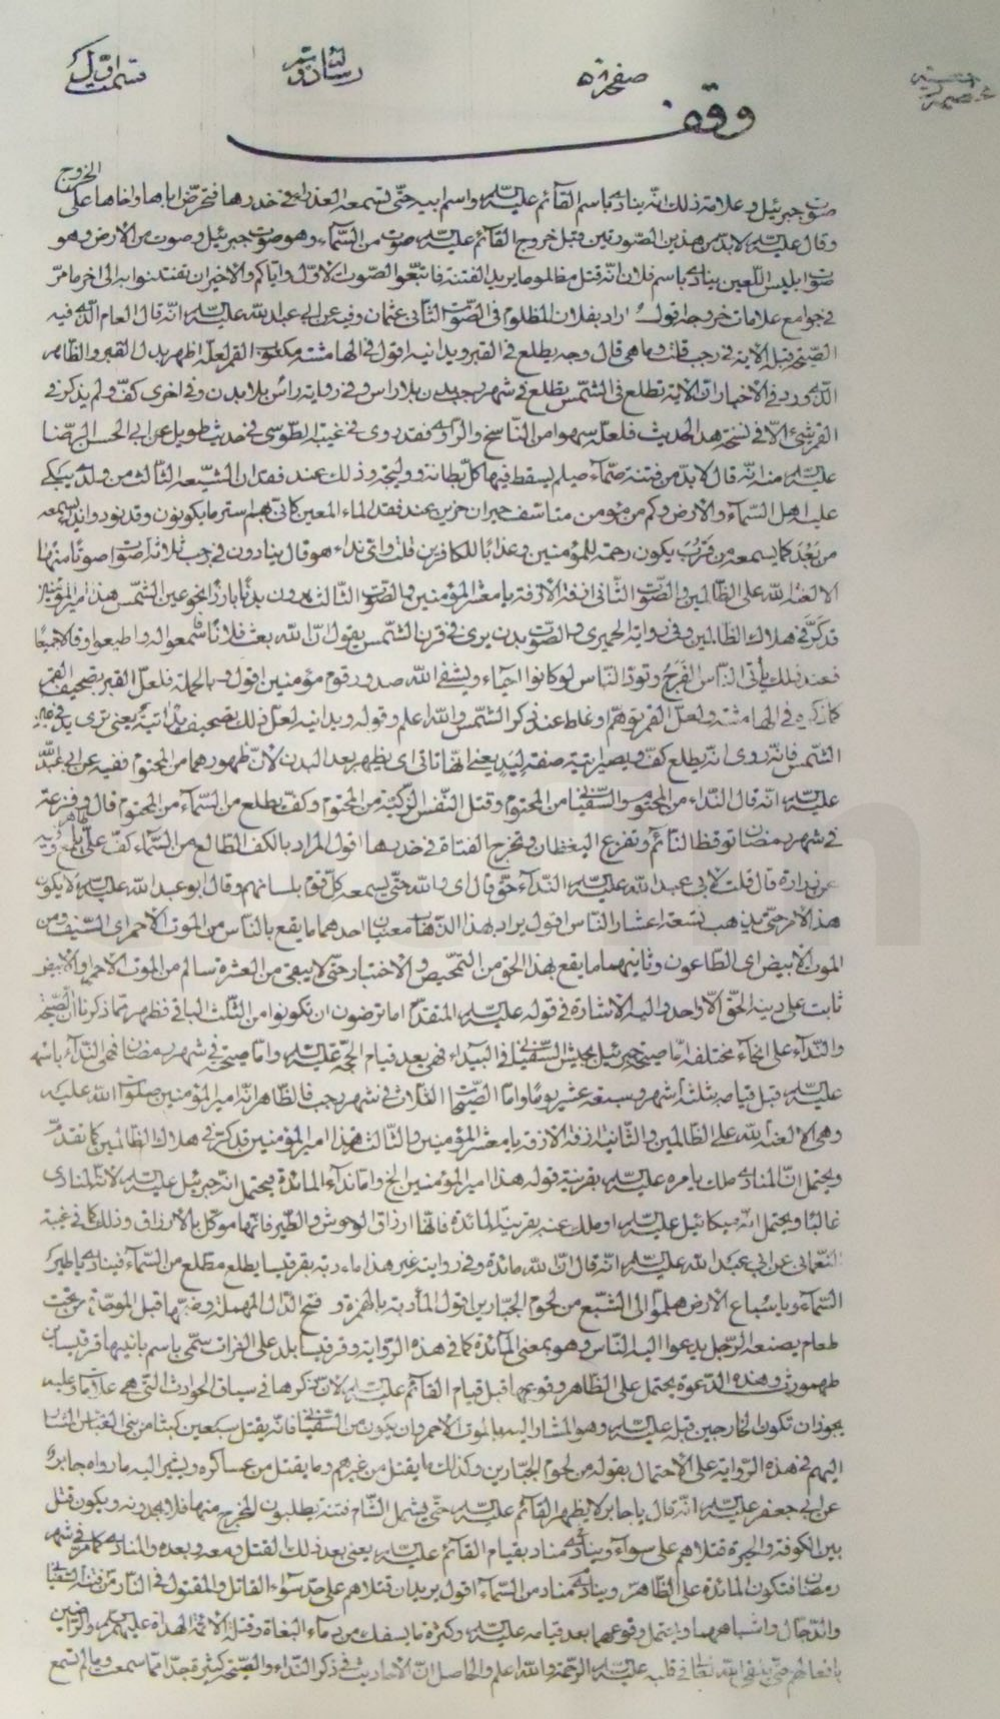 وقف
صوت جبرئيل وعلامة ذلك انّه ينادى باسم القآئم عليه السّلم واسم ابيه حتّى تسمعه العذراء فى خدرها فتحرّض اباها واخاها على الخروج
وقال عليه السّلم لابدّ من هذين الصّوتين قبل خروج القآئم عليه السّلم صوت من السّمآء وهو صوت جبرئيل وصوت من الأرض وهو
صوت ابليس اللّعين ينادى باسم فلان انّه قتل مظلوما يريد الفتنة فاتبّعوا الصّوت الاوّل وايّاكم والاخير ان تفتتنوا به الى اخر ما مرّ
فى جوامع علامات خروجه اقول اراد بفلان المظلوم فى الصّوت الثّانى عثمان وفيه عن ابى عبد الله عليه السّلم انّه قال العام الّذى فيه
الصّيحة قبله الاية فى رجب قلت وما هى قال وجه يطلع فى القبر ويد انيه اقول فى الهامشة مكتوب القمر لعلّه اظهر بدل القبر والظاهر
الّذى ورد فى الاخبار انّ الاية تطلع فى الشّمس يطلع فى شهر رجب بدن بلا راس وفى رواية رأس بلا بدن وفى اخرى كفّ ولم يذكر فى
القمر شىء الّا فى نسخة هذا الحديث فلعلّه سهوا من النّاسخ والرّاوى فقد روى فى غيبة الطّوسى فى حديث طويل عن ابى الحسن الرّضا
عليه السّلم منه انّه قال لابدّ من فتنة صمّآء صيلم يسقط فيها كلّ بطانة ووليجة وذلك عند فقدان الشّيعة الثّالث من ولدى يبكى
عليه اهل السّمآء والأرض وكم من مؤمن متاسّف حيران حزين عند فقد المآء المعين كانّى بهم استر ما يكونون وقد نودوا نداء يسمعه
من بَعُدَ كما يسمعه من قَرُبَ يكون رحمة للمؤمنين وعذابًا للكافرين قلت واىّ نداء هو قال ينادون فى رجب ثلاثة اصوات صوتًا منها
الا لعنة الله على الظّالمين والصّوت الثّانى ازفت الازفة يا معشر المؤمنين والصّوت الثّالث يرون بدنًا بارزًا نحو عين الشّمس هذا امير المؤمنين
قد كرّ فى هلاك الظّالمين وفى رواية الحميرى والصّوت بدن يرى فى قرن الشّمس يقول انّ الله بعث فلانًا فاسمعوا له واطيعوا وقالا جميعًا
فعند ذلك يأتى النّاس الفَرَجُ وتودّ النّاس لو كانوا احيآء ويشفى الله صدور قوم مؤمنين اقول وبالجملة فلعلّ القبر تصحيف القمر
كما ذكره فى الهامشة ولعلّ القمر توهّم او غلط عند ذكر الشّمس والله اعلم وقوله ويد انيه لعلّ ذلك تصحيف يدًا اتيةً يعنى ترى يد فى عين
الشّمس فانّه روى انّه يطلع كفّ ويصير اتية صفة ليد يعنى انّها تاتى اى يظهر بعد البدن لانّ ظهورهما من المحتوم ففيه عن ابى عبد الله
عليه السّلم انّه قال النّداء من المحتوم والسّفيانى من المحتوم وقتل النّفس الزّكيّة من المحتوم وكفّ يطلع من السّمآء من المحتوم قال وفزعة
فى شهر رمضان توقظ النّآئم وتفزع اليقظان وتخرج الفتاة من خدرها اقول المراد بالكف الطّالع من السّماء كفّ علىّ
عن زرارة قال قلت لابى عبد الله عليه السّلم النّدآء حقّ قال اى والله حتّى يسمعه كلّ قوم بلسانهم وقال ابو عبد الله عليه السّلم لا يكون
هذا الامر حتّى يذهب تسعة اعشار النّاس اقول يراد بهذا الذّهاب معنيان احدهما ما يقع بالنّاس من الموت الاحمر اى السّيف ومن
الموت الابيض اى الطّاعون وثانيهما ما يقع بهذا الخلق من التّمحيص والاختبار حتّى لا يبقى من العشرة سالم من الموت الاحمر والابيض
ثابت على دينه الحقّ الّا واحد واليه الاشارة فى قوله عليه السّلم المتقدّم اما ترضون ان تكونوا من الثّلث الباقى فظهر ممّا ذكرنا انّ الصّيحة
والنّدآء على انحآء مختلفة امّا صيحة جبرئيل بجيش السّفيانى فى البيداء فهى بعد قيام الحجّة عليه السّلم وامّا صيحته فى شهر رمضان فهى النّدآء باسمه
عليه السّلم قبل قيامه بثلثة اشهر وسبعة عشر يومًا وامّا الصّيحات الثّلاث فى شهر رجب فالظّاهر انّه امير المؤمنين صلوات الله عليه
وهى الا لعنة الله على الظّالمين والثّانية ازفت الازفة يا معشر المؤمنين والثّالث هذا امير المؤمنين قد كرّ فى هلاك الظّالمين كما تقدّم
ويحتمل انّ المنادى ملك يامره عليه السّلم بقرينة قوله هذا امير المؤمنين الخ وامّا ندآء المائدة فيحتمل انّه جبرئيل عليه السّلم لانّه المنادى
غالبًا ويحتمل انّه ميكائيل عليه السّلم او ملك عنه بقرينة المائدة فانّها ارزاق الوحوش والطّير فانّهما موكّل بالارزاق وذلك كما فى غيبة
النّعمانى عن ابى عبد الله عليه السّلم انّه قال انّ لله مائدة وفى رواية غير هذا مأدبة بقرقيسا يطلع مطّلع من السّمآء فينادى يا طير
السّمآء ويا سباع الارض هلمّوا الى الشّبع من لحوم الجبّارين اقول المأدبة بالهمزة وفتح الدّال المهملة وضمّها قبل الموحّدة من تحت
طعام يصنعه الرّجل يدعوا اليه النّاس وهو بمعنى المآئدة كما فى هذه الرّواية وقرقيسا بلد على الفرات سمّى باسم بانيها قرقيسا بن
طهمورث وهذه الدّعوة يحتمل على الظّاهر وقوعها قبل قيام القآئم عليه السّلم لانّه ذكرها فى سياق الحوادث الّتى هى علامات وعليه
يجوز ان تكون الخارجين قبله عليه السّلم وهو المشار اليه بالموت الاحمر وان يكون من السّفيانى فانّه يقتل سبعين كبشا من بنى العبّاس المشار
اليهم فى هذه الرّواية على الاحتمال بقوله من لحوم الجبّارين وكذلك ما يقتل من غيرهم وما يقتل من عساكره ويشير اليه ما رواه جابر
عن ابى جعفر عليه السّلم انّه قال يا جابر لا يظهر القآئم عليه السّلم حتّى يشمل الشّام فتنة يطلبون المخرج منها فلا يجدونه ويكون قتل
بين الكوفة والحيرة قتلاهم على سوآء وينادى مناد بقيام القآئم عليه السّلم يعنى بعد ذلك القتل ومعه وبعده والمنادى كما مرّ فى شهر
رمضان فتكون المائدة على الظّاهر وينادى مناد من السّمآء اقول يريد ان قتلاهم على حدّ سوآء القاتل والمقتول فى النّار من فتنة السّفيانى
والدّجّال واشباههما ويحتمل وقوعهما بعد قيامه عليه السّلم وكثرة ما يسفك من دمآء البغاة وقتلة الائمّة الهداة عليهم السّلم والرّاضين
بافعالهم حتّى يلقى الله تعالى فى قلبه عليه السّلم الرّحمة والله اعلم والحاصل انّ الاحاديث فى ذكر النّداء والصّيحة كثيرة جدّا ممّا سمعت وما لم تسمع